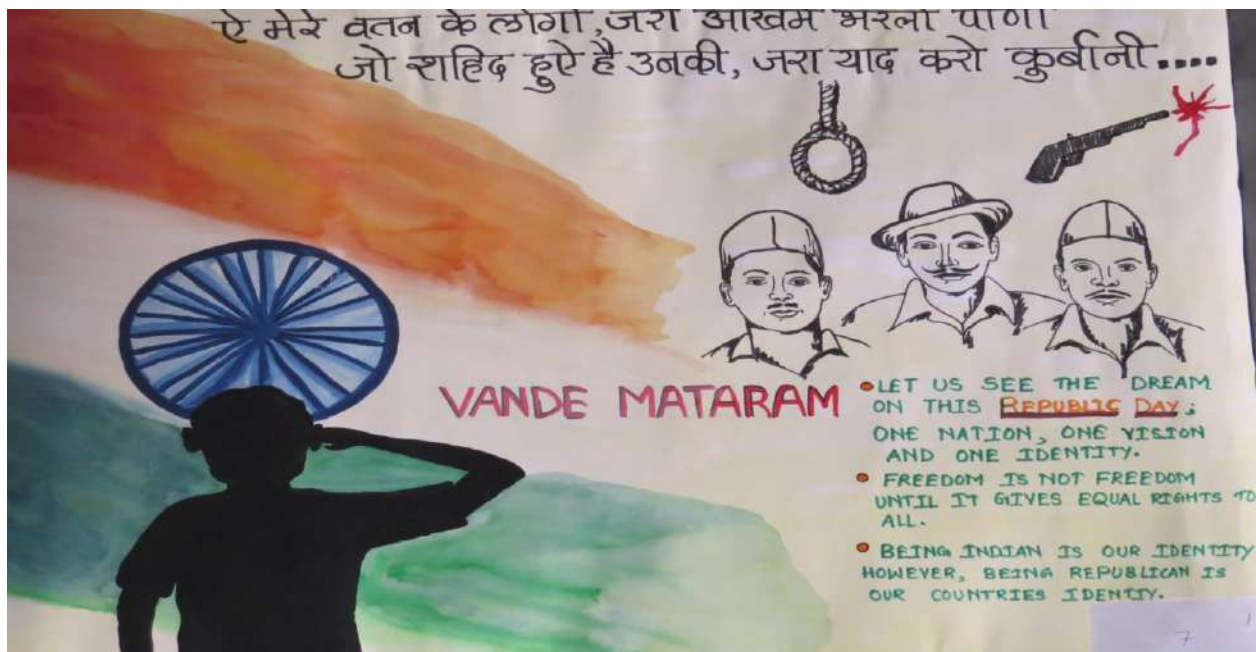 ऐ मेरे वतन के लोगो, जरा आखमे भरलो पाणी
जो शहिद हुऐ है उनकी, जरा याद करो कुर्बानी....
VANDE MATARAM
• LET US SEE THE DREAM
ON THIS REPUBLIC DAY;
ONE NATION, ONE VISION
AND ONE IDENTITY.
• FREEDOM IS NOT FREEDOM
UNTIL IT GIVES EQUAL RIGHTS TO
ALL.
• BEING INDIAN IS OUR IDENTITY
HOWEVER, BEING REPUBLICAN IS
OUR COUNTRIES IDENTIY.
7